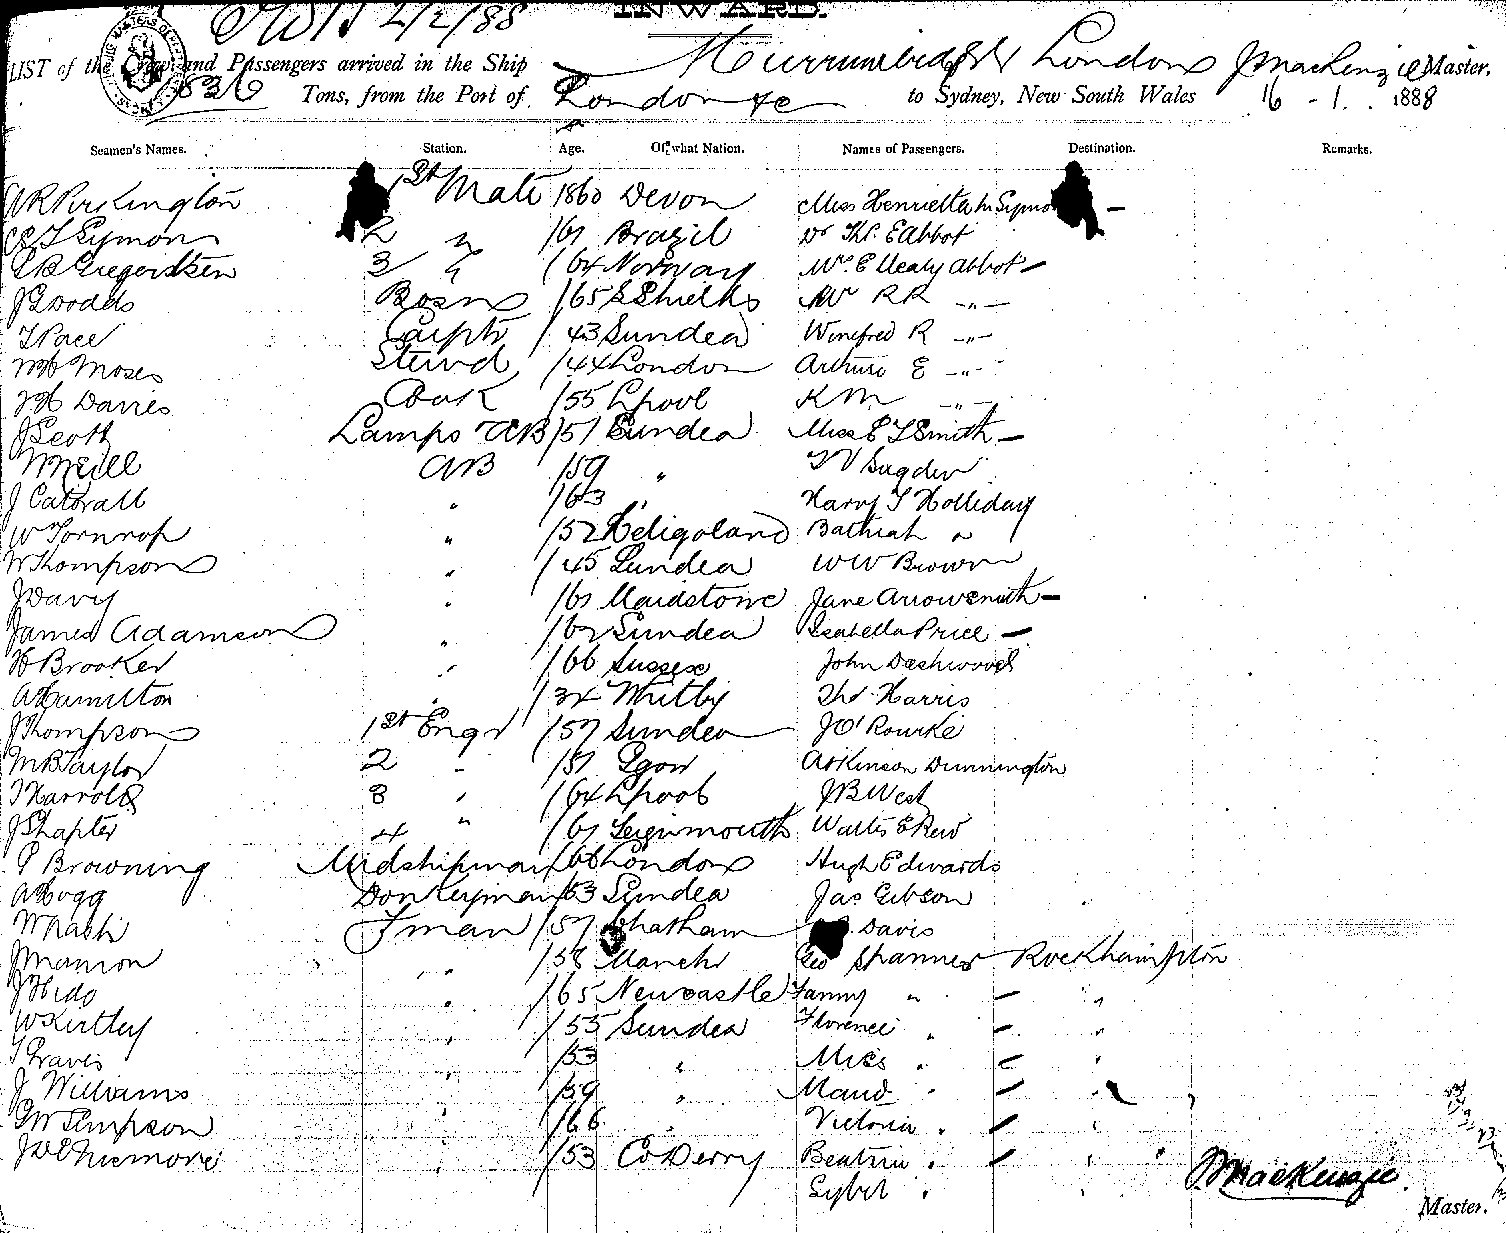 INWARD.
4/2/88
LIST of the Crew and Passengers arrived in the Ship Murrumbidgee London J Mackenzie Master,
Tons, from the Port of London &c to Sydney, New South Wales 16 - 1. 1888
Seamen's Names. Station. Age. Of what Nation. Names of Passengers. Destination. Remarks.
1st Mate 1860 Devon Miss Henrietta M Symons —
Symons 2 " /61 Brazil Dr Thos. E Abbot
3 " /64 Norway Mrs. E Healy Abbot —
J Dodds Bosn /65 S Shields Mr R R -"-
T Pace Carptr /43 Sundea Winefred R -"-
Moses Stewd /44 London Arthur E -"-
Davies Cook /55 Lpool K M -"-
J Scott Lamps & AB /51 Sundea Miss E T Smith —
W Neill AB /59 " Sugden
J Catorall " /63 " Harry T Holliday
W Tornrop " /52 Heligoland Bathiah "
W Thompson " /45 Sundea W W Brown
J Davy " /61 Maidstone Jane Arrowsmith —
James Adamson " /62 Sundea Isabella Price —
H Brooker " /66 Sussex John Dashwood
A Hamilton " /34 Whitby Thos Harris
J Thompson 1st Engr /57 Sundea J O'Rourke
M B Taylor 2 - /57 Atkinson Dunnington
T Harrold 3 " /64 Lpool J B West
J Shapter 4 " /61 Teignmouth Walter E Rew
P Browning Midshipman /66 London Hugh Edwards
A Hogg Donkeyman /53 Sundea Jas Gibson
W Nash Fman /57 Chatham Davis
J Manion " /58 Manchr Geo Shannes Rockhampton
" /65 Newcastle Fanny " — "
W Kirtley " /55 Sundea Florence " — "
T Travis " /53 " Miss " — "
J Williams " /59 " Maud " — "
Simpson " /66 " Victoria " — "
" /53 Co Derry Beatrice " — "
Sybil " "
J Mackenzie.
Master.